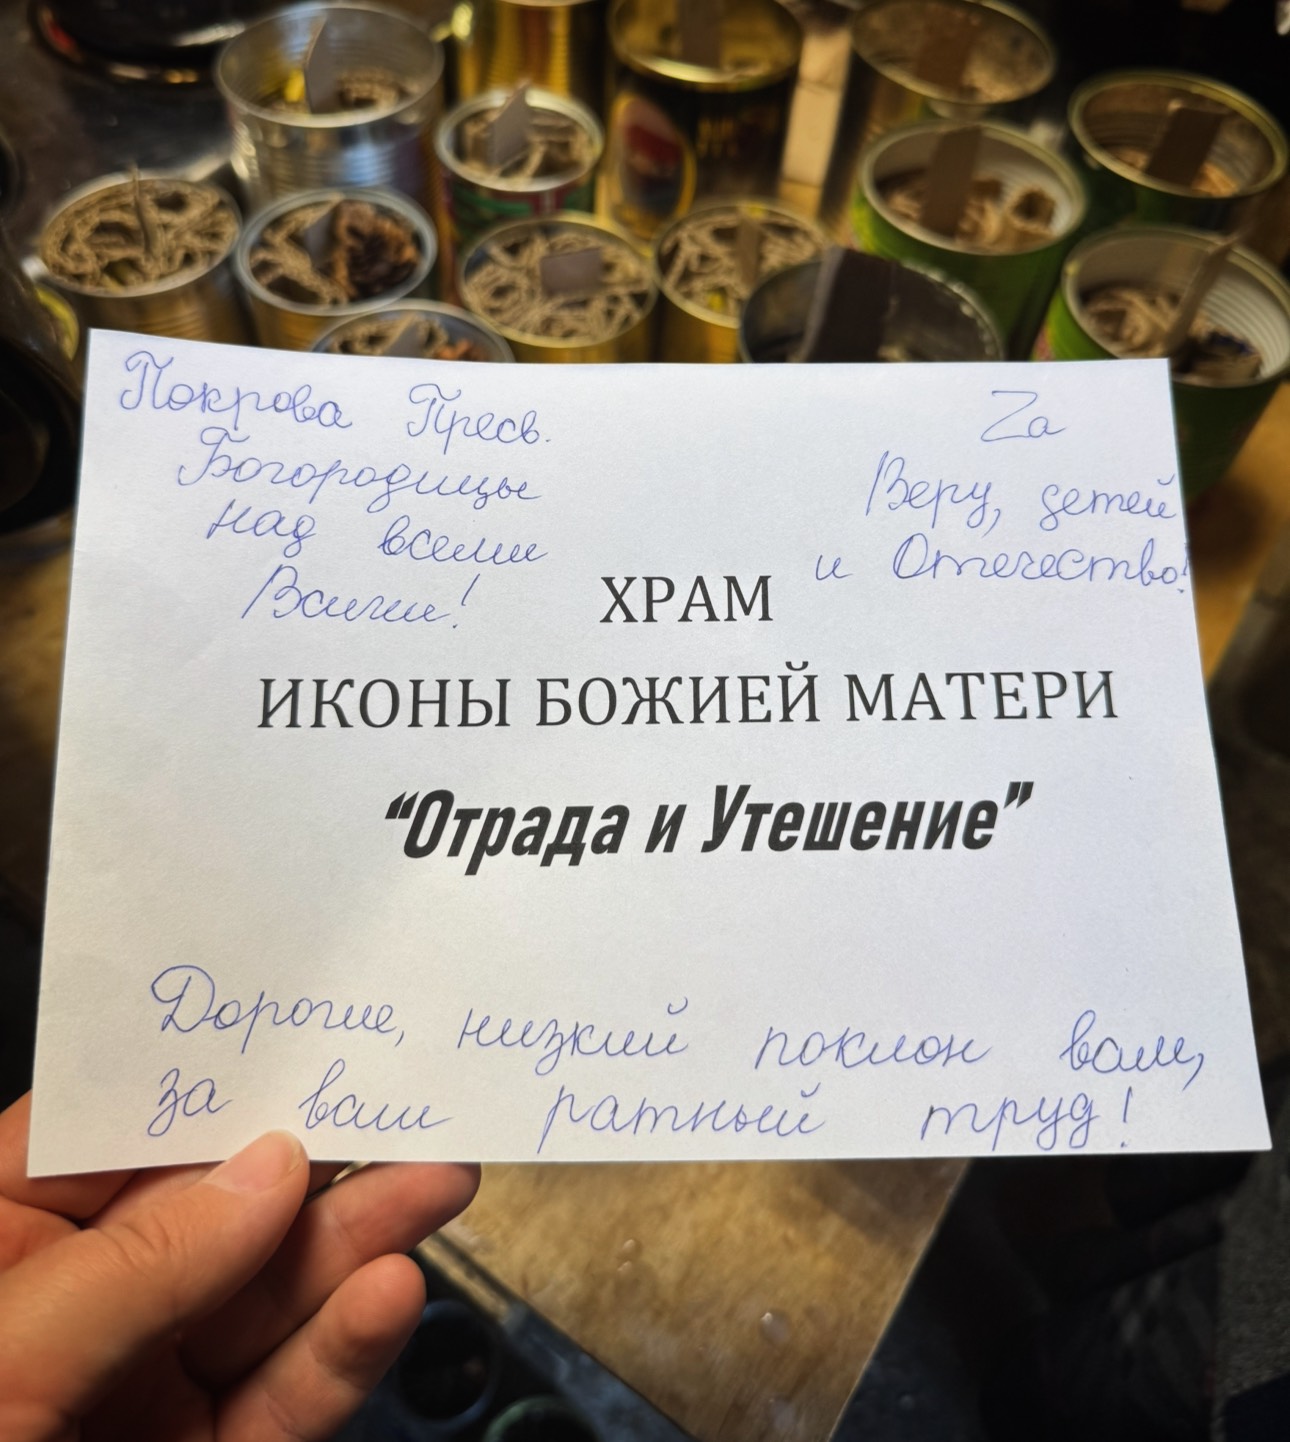 Покрова Пресв.
Богородицы
над всеми
Вами!
Zа
Веру, детей
и Отечество!
ХРАМ
ИКОНЫ БОЖИЕЙ МАТЕРИ
“Отрада и Утешение”
Дорогие, низкий поклон вам,
за ваш ратный труд!